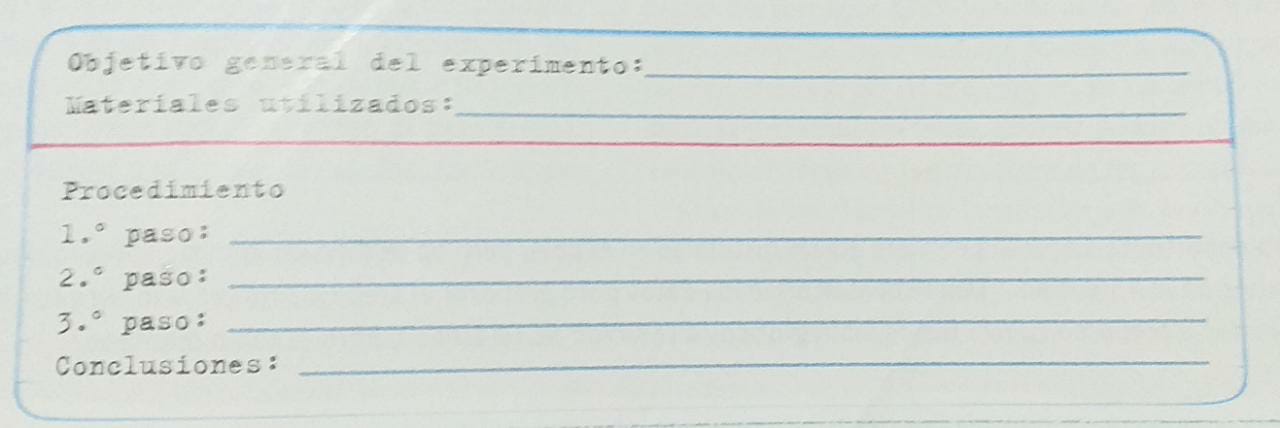 Objetivo general del experimento:
Materiales utilizados:
Procedimiento
1.° paso:
2.° paso:
3.° paso:
Conclusiones: